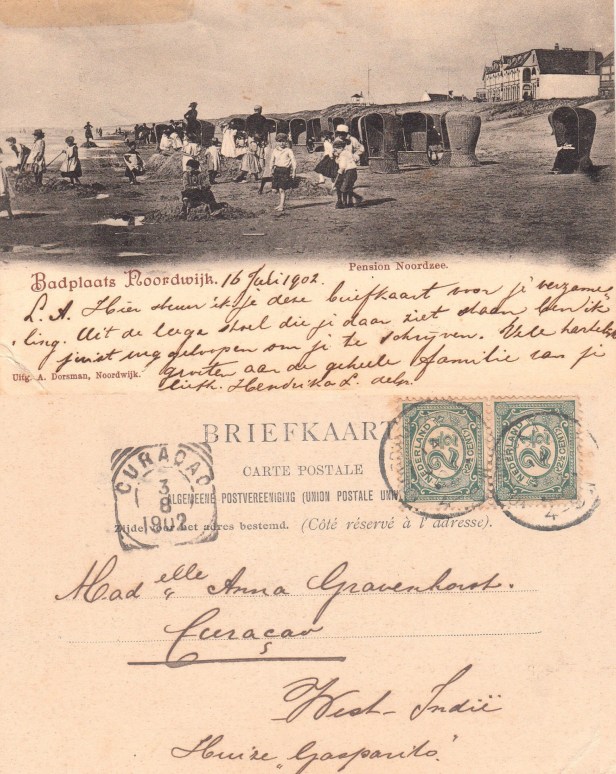 Badplaats Noordwijk. 16 Juli 1902.
Pension Noordzee.
L. A. Hier stuur ik je deze briefkaart voor je verzame
ling. Uit de lege stoel die je daar ziet staan ben ik
juist weggeloopen om je te schrijven. Vele hartelijke
groeten aan de geheele familie van je
Hendrika L.
Uitg. A. Dorsman, Noordwijk.
BRIEFKAART
CARTE POSTALE
ALGEMEENE POSTVEREENIGING (UNION POSTALE UNIV
Zijde voor het adres bestemd. (Côté réservé à l'adresse).
CURAÇAO
3
8
1902
NEDERLAND 2½ CENT
NEDERLAND 2½ CENT
Mad elle Anna Gravenhorst.
Curaçao
West-Indië
Huize „Gasparito".